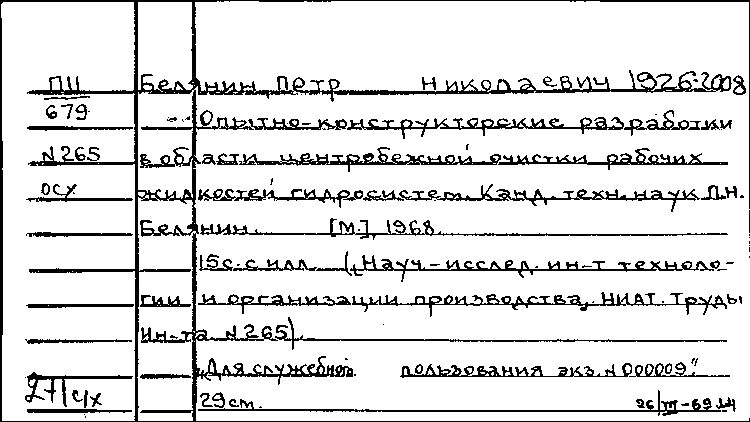 ПII Белянин, Петр Николаевич 1926-2008
679 -- Опытно-конструкторские разработки
N265 в области центробежной очистки рабочих
осх жидкостей гидросистем. Канд. техн. наук П.Н.
Белянин. [М.], 1968.
15с. с илл. („Науч.-исслед. ин-т техноло-
гии и организации производства, НИАТ. Труды
Ин-та N265).
„Для служебного пользования экз. N 000009."
29см.
26/III-69